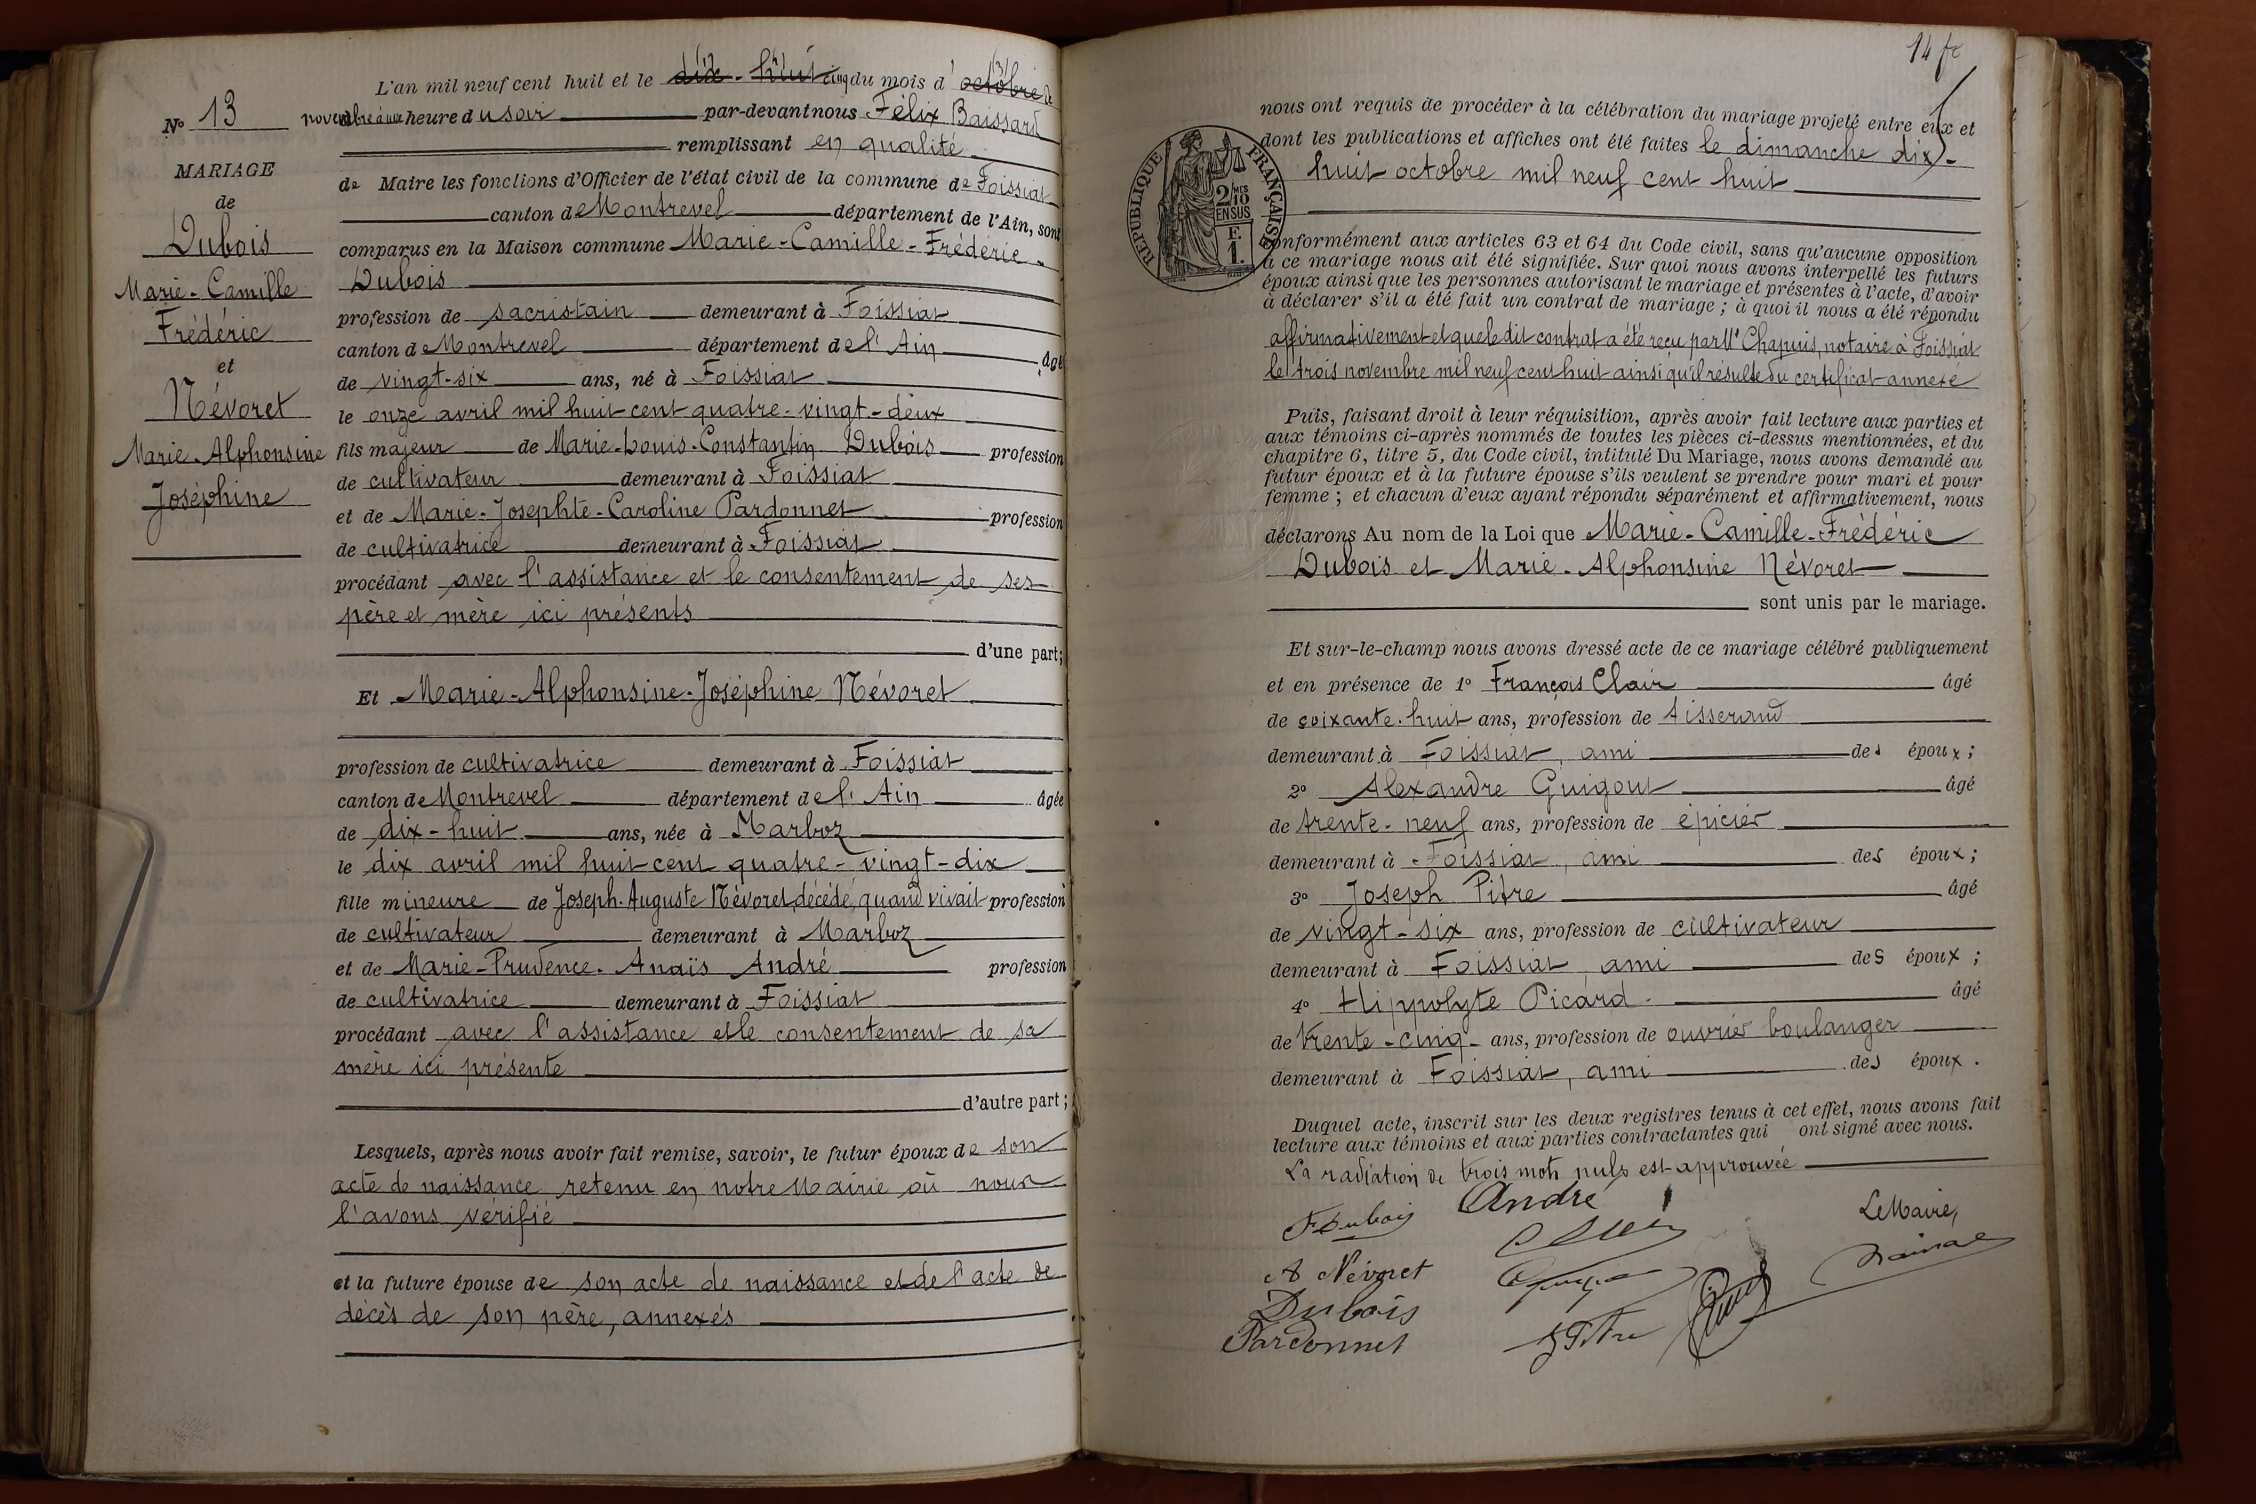 N° 13
MARIAGE
de
Dubois
Marie-Camille
Frédéric
et
Névoret
Marie-Alphonsine
Joséphine
L'an mil neuf cent huit et le dix-huit cinq du mois d'octobre de
novembre à une heure du soir par-devant nous Félix Baissard
remplissant en qualité
de Maire les fonctions d'Officier de l'état civil de la commune de Foissiat
canton de Montrevel département de l'Ain, sont
comparus en la Maison commune Marie-Camille-Frédéric
Dubois
profession de sacristain demeurant à Foissiat
canton de Montrevel département de l'Ain âgé
de vingt-six ans, né à Foissiat
le onze avril mil huit cent quatre-vingt-deux
fils majeur de Marie-Louis-Constantin Dubois profession
de cultivateur demeurant à Foissiat
et de Marie-Josephte-Caroline Pardonnet profession
de cultivatrice demeurant à Foissiat
procédant avec l'assistance et le consentement de ses
père et mère ici présents
d'une part;
Et Marie-Alphonsine-Joséphine Névoret
profession de cultivatrice demeurant à Foissiat
canton de Montrevel département de l'Ain âgée
de dix-huit ans, née à Marboz
le dix avril mil huit cent quatre-vingt-dix
fille mineure de Joseph-Auguste Névoret, décédé, quand vivait profession
de cultivateur demeurant à Marboz
et de Marie-Prudence-Anaïs André profession
de cultivatrice demeurant à Foissiat
procédant avec l'assistance et le consentement de sa
mère ici présente
d'autre part;
Lesquels, après nous avoir fait remise, savoir, le futur époux de son
acte de naissance retenu en notre Mairie où nous
l'avons vérifié
et la future épouse de son acte de naissance et de l'acte de
décès de son père, annexés
14
nous ont requis de procéder à la célébration du mariage projeté entre eux et
dont les publications et affiches ont été faites le dimanche dix-
huit octobre mil neuf cent huit
RÉPUBLIQUE FRANÇAISE
2/10
EN SUS
F.
1.
conformément aux articles 63 et 64 du Code civil, sans qu'aucune opposition
à ce mariage nous ait été signifiée. Sur quoi nous avons interpellé les futurs
époux ainsi que les personnes autorisant le mariage et présentes à l'acte, d'avoir
à déclarer s'il a été fait un contrat de mariage; à quoi il nous a été répondu
affirmativement et que le dit contrat a été reçu par Me Chapuis, notaire à Foissiat
le trois novembre mil neuf cent huit ainsi qu'il résulte du certificat annexé
Puis, faisant droit à leur réquisition, après avoir fait lecture aux parties et
aux témoins ci-après nommés de toutes les pièces ci-dessus mentionnées, et du
chapitre 6, titre 5, du Code civil, intitulé Du Mariage, nous avons demandé au
futur époux et à la future épouse s'ils veulent se prendre pour mari et pour
femme; et chacun d'eux ayant répondu séparément et affirmativement, nous
déclarons Au nom de la Loi que Marie-Camille-Frédéric
Dubois et Marie-Alphonsine Névoret
sont unis par le mariage.
Et sur-le-champ nous avons dressé acte de ce mariage célébré publiquement
et en présence de 1° François Clair âgé
de soixante-huit ans, profession de tisserand
demeurant à Foissiat, ami des époux;
2° Alexandre Guigout âgé
de trente-neuf ans, profession de épicier
demeurant à Foissiat, ami des époux;
3° Joseph Pitre âgé
de vingt-six ans, profession de cultivateur
demeurant à Foissiat, ami des époux;
4° Hippolyte Picard âgé
de trente-cinq ans, profession de ouvrier boulanger
demeurant à Foissiat, ami des époux.
Duquel acte, inscrit sur les deux registres tenus à cet effet, nous avons fait
lecture aux témoins et aux parties contractantes qui ont signé avec nous.
La radiation de trois mots nuls est approuvée
F Dubois André
Le Maire,
A Névoret
Dubois
Pardonnet J Pitre